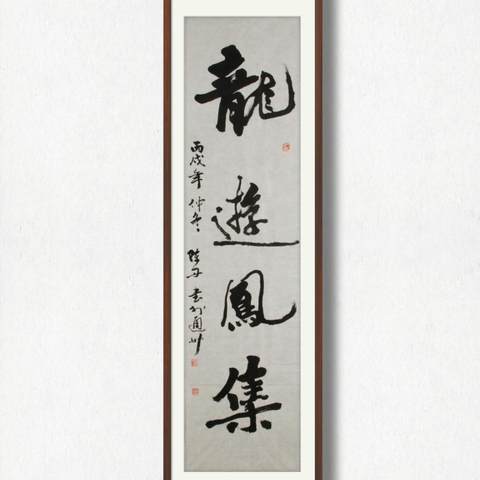 龍遊鳳集
丙戌年仲冬陸丹書於通州